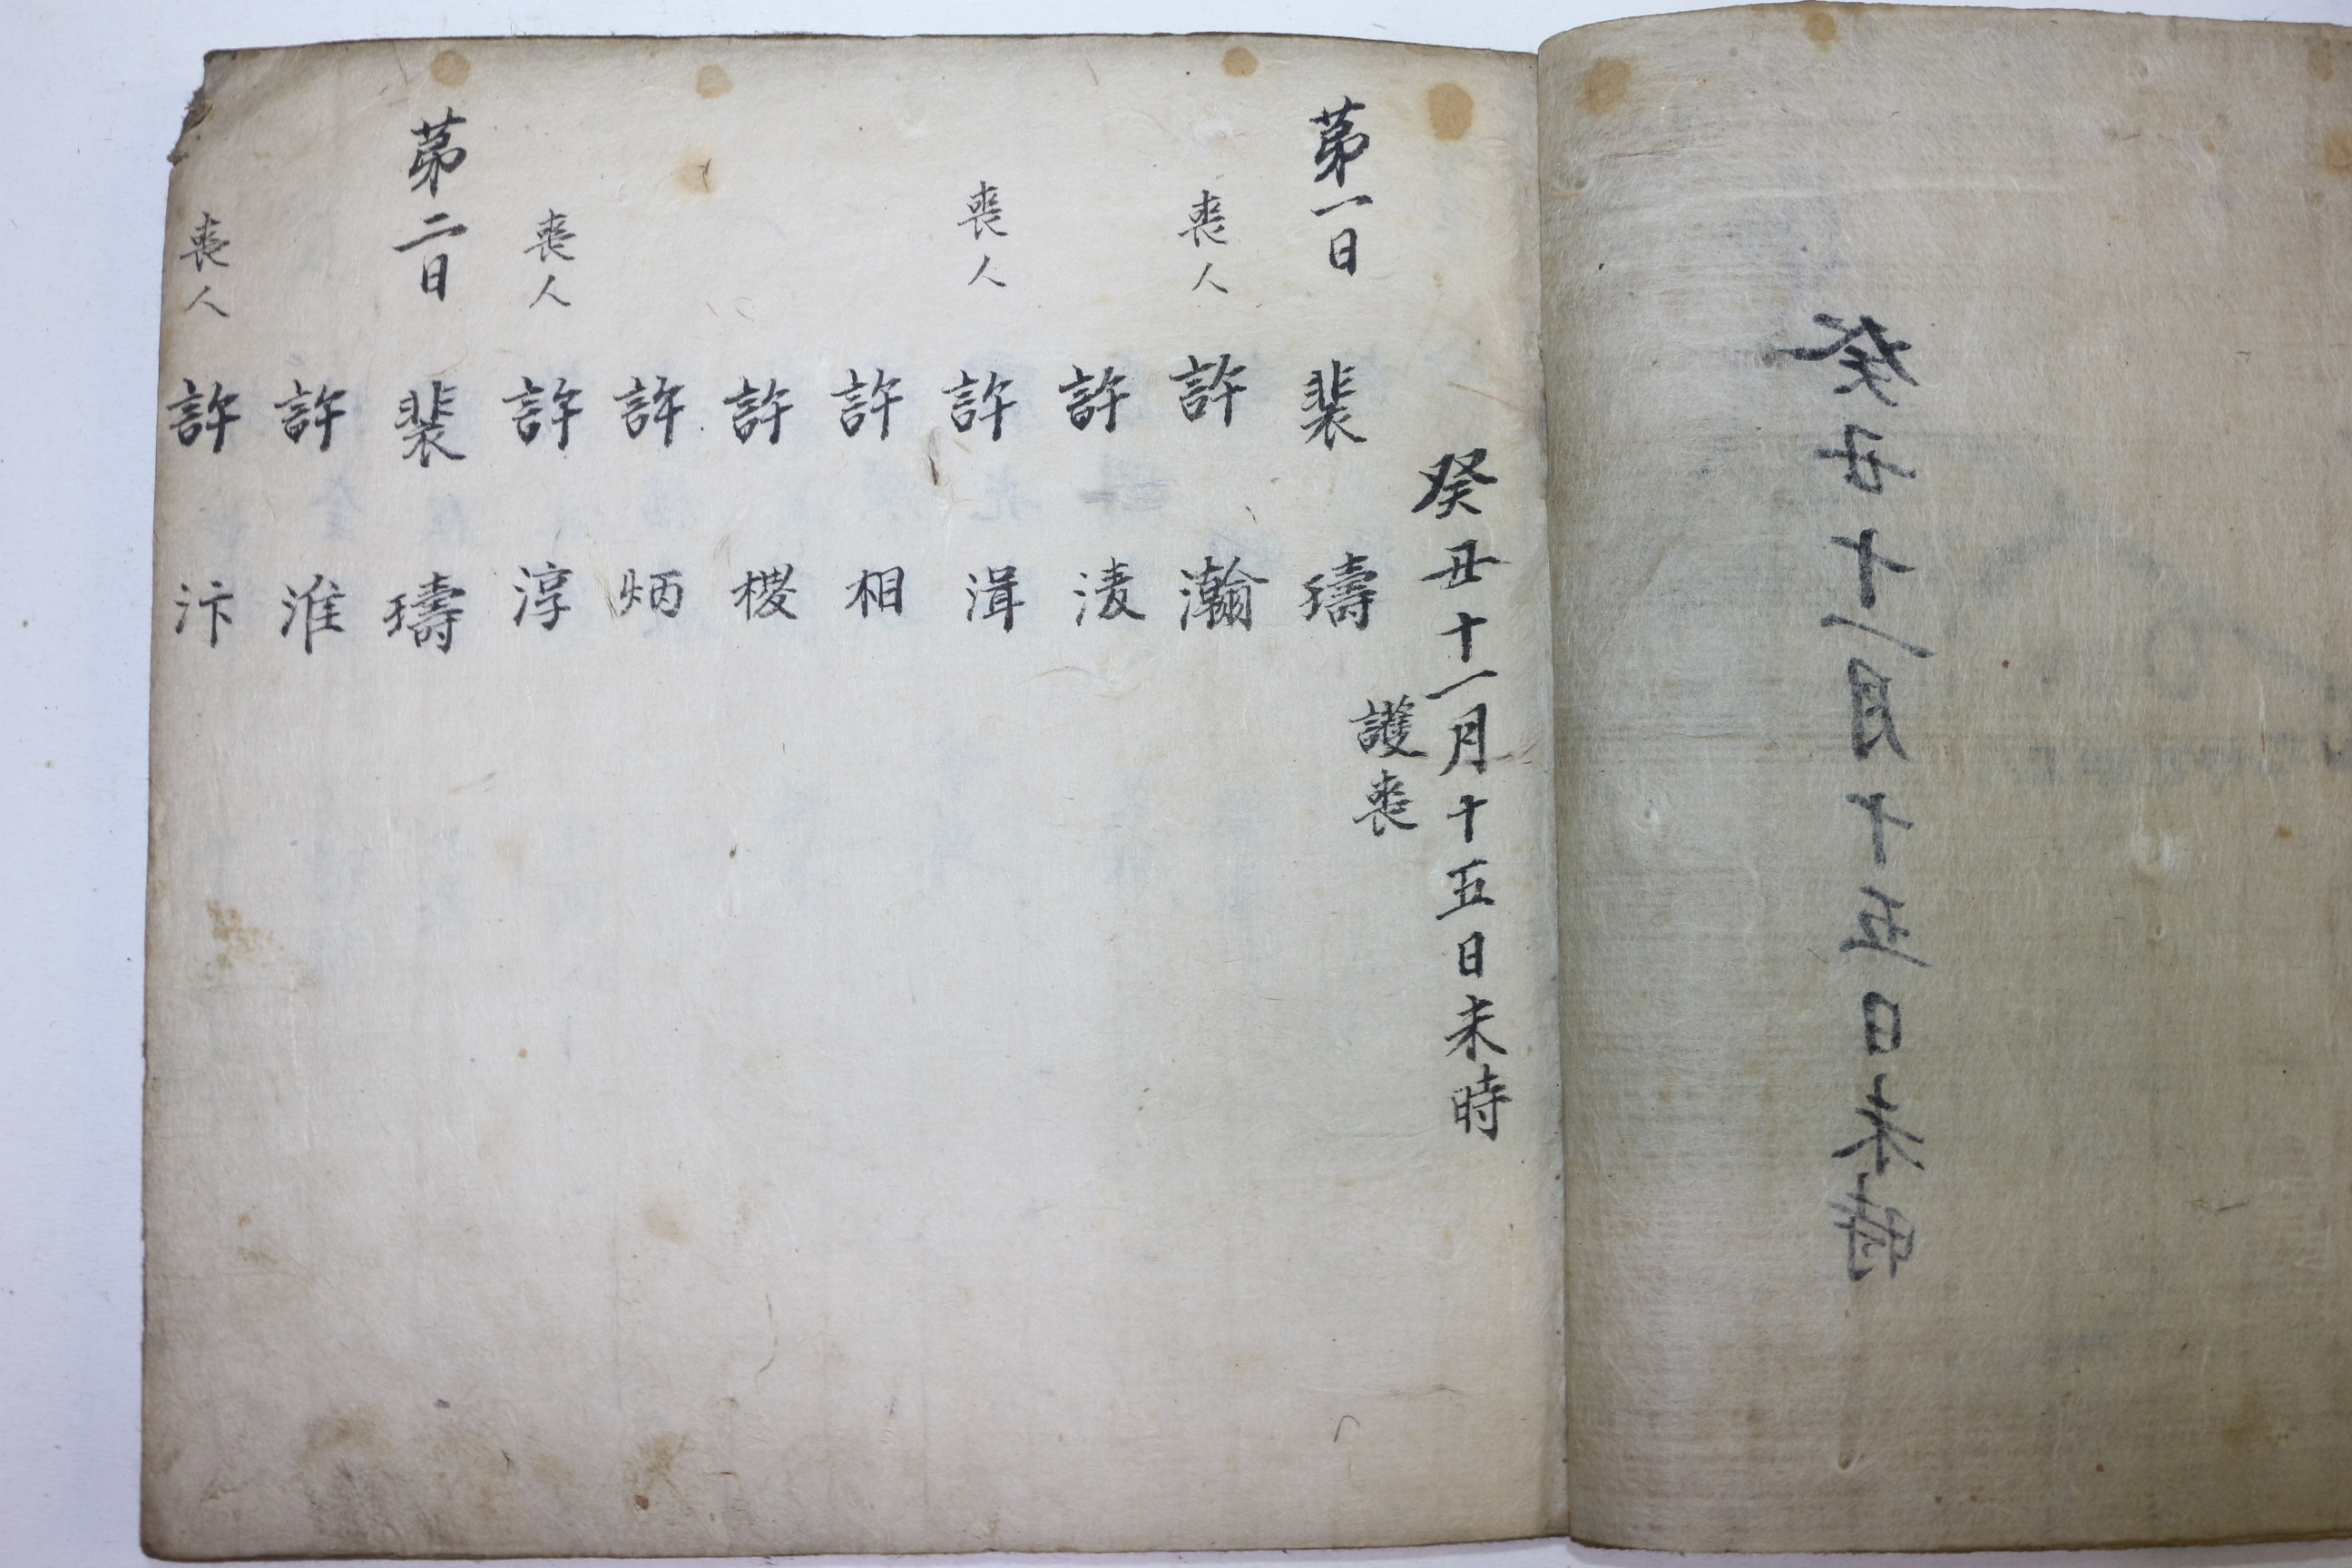 癸丑十一月十五日未時
癸丑十一月十五日未時
護喪
第一日 裴 璹
喪人 許 瀚
許 淒
喪人 許 湒
許 相
許 楥
許 炳
喪人 許 淳
第二日 裴 璹
許 淮
喪人 許 汴